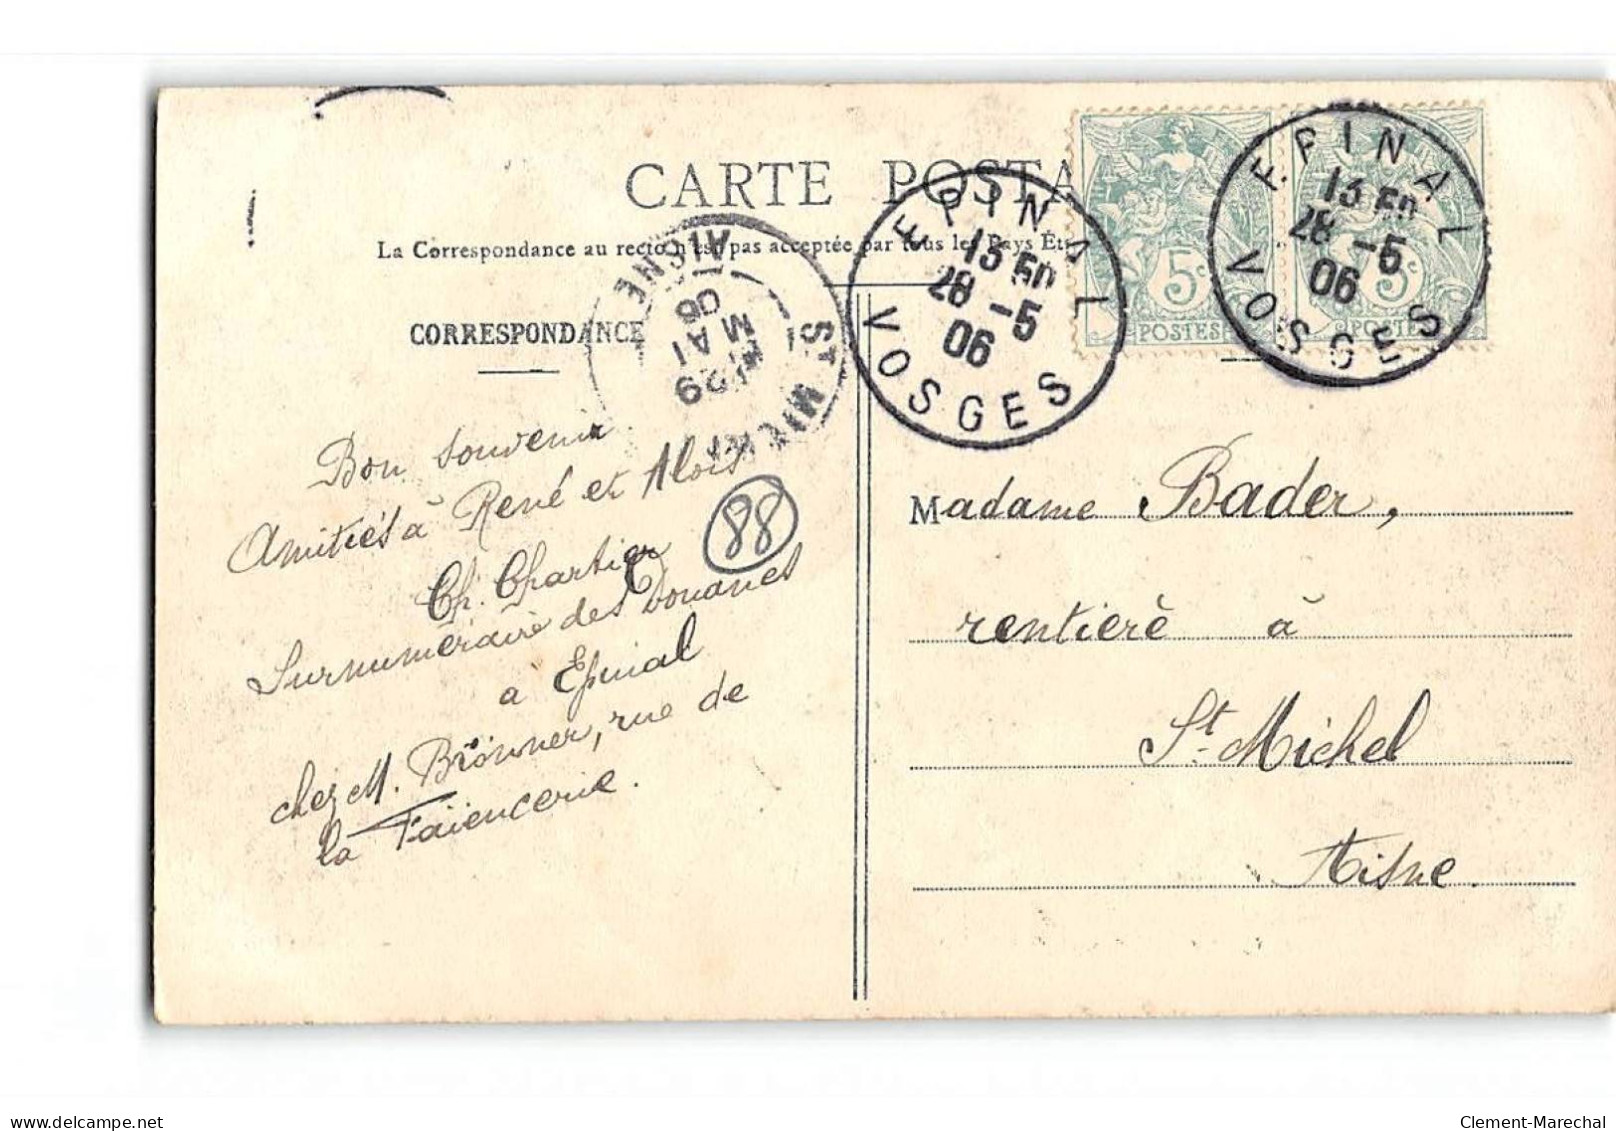 CARTE POSTA
La Correspondance au recto n'est pas acceptée par tous les Pays Ét
CORRESPONDANCE
AISNE
06
MAI
29
ST MICHEL
EPINAL
13 50
28 -5
06
VOSGES
5c
POSTES
EPINAL
13 50
28 -5
06
VOSGES
5c
POSTES
Bon souvenir
Amitiés à René et Alois
Ch. Chartier
Surnuméraire des Douanes
à Epinal
chez M. Brönner, rue de
la Faïencerie.
88
Madame Bader,
rentière à
St. Michel
Aisne.
delcampe.net
Clement-Marechal